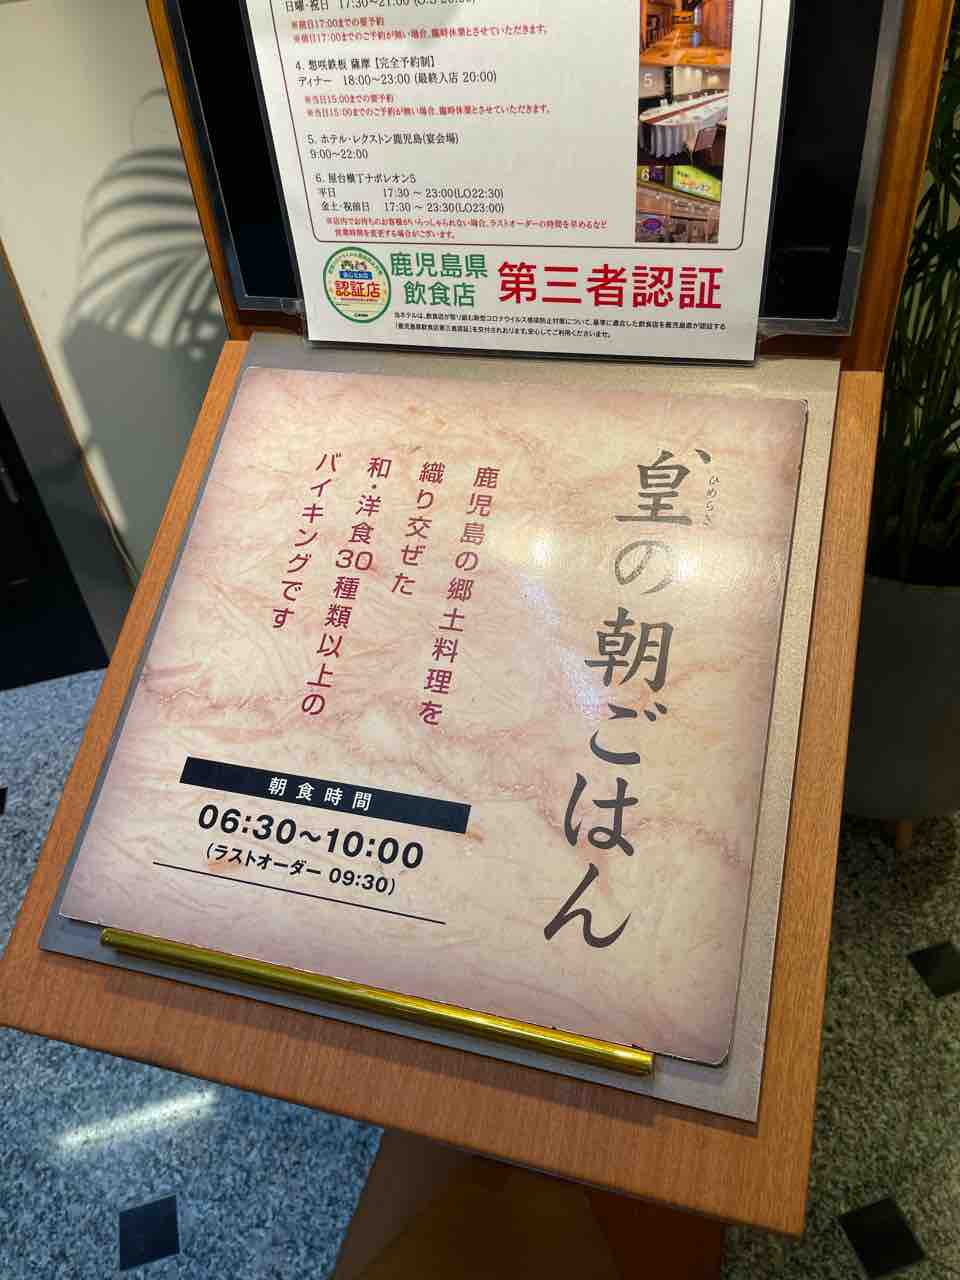 日曜・祝日 17:30~21:00
※前日17:00までの要予約
※前日17:00までのご予約が無い場合、臨時休業とさせていただきます。
4. 想咲鉄板 薩摩【完全予約制】
ディナー 18:00~23:00 (最終入店 20:00)
※当日15:00までの要予約
※当日15:00までのご予約が無い場合、臨時休業とさせていただきます。
5. ホテル・レクストン鹿児島(宴会場)
9:00~22:00
6. 屋台横丁ナポレオン5
平日 17:30 ~ 23:00(LO22:30)
金土・祝前日 17:30 ~ 23:30(LO23:00)
※店内でお待ちのお客様がいらっしゃられない場合、ラストオーダーの時間を早めるなど
営業時間を変更する場合がございます。
5
6
ナポレオン
認証店
鹿児島県
飲食店
第三者認証
当ホテルは、飲食店が取り組む新型コロナウイルス感染防止対策について、基準に適合した飲食店を鹿児島県が認証する
「鹿児島県飲食店第三者認証」を交付されおります。安心してご利用くださいませ。
皇の朝ごはん
ひめらぎ
鹿児島の郷土料理を
織り交ぜた
和・洋食30種類以上の
バイキングです
朝食時間
06:30~10:00
(ラストオーダー 09:30)